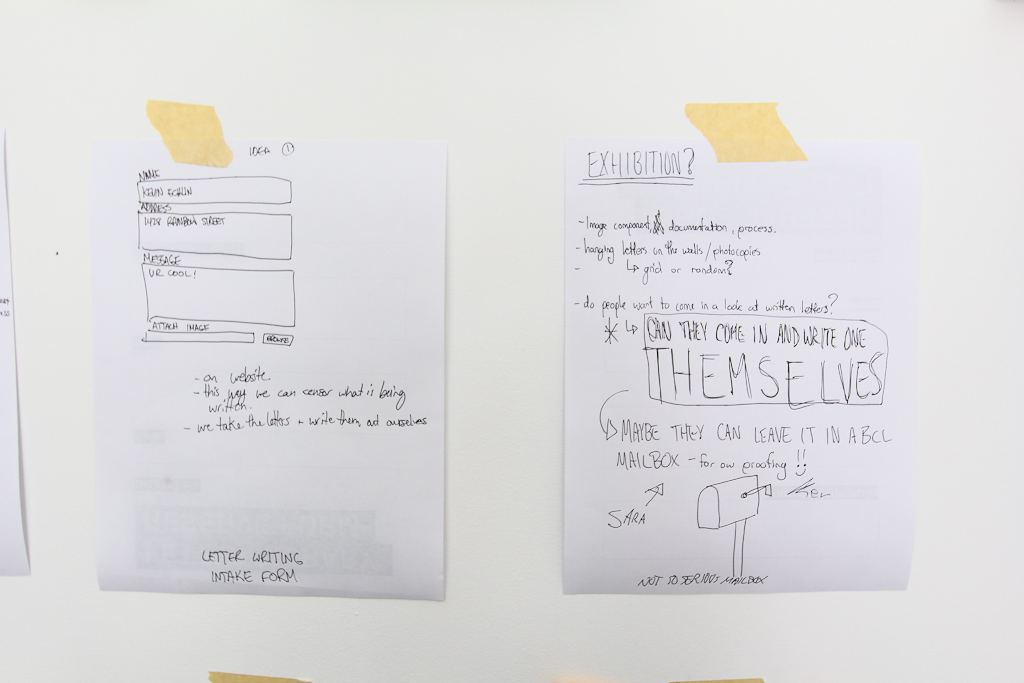 IDEA 1
NAME
KEVIN
ADDRESS
1428 RAINBOW STREET
MESSAGE
UR COOL!
ATTACH IMAGE
BROWSE
- on website.
- this way we can censor what is being
written.
- we take the letters + write them out ourselves
LETTER WRITING
INTAKE FORM
EXHIBITION?
- Image component, documentation, process.
- hanging letters on the walls / photocopies
-
↳ grid or random?
- do people want to come in a look at written letters?
* ↳ CAN THEY COME IN AND WRITE ONE
THEMSELVES
MAYBE THEY CAN LEAVE IT IN A BCL
MAILBOX - for our proofing !!
SARA
NOT SO SERIOUS MAILBOX